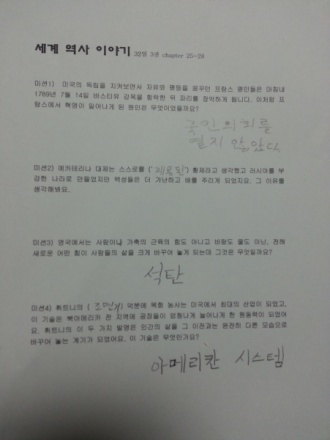 세계 역사 이야기 22월 3주 chapter 25-28
미션1) 미국의 독립을 지켜보면서 자유와 평등을 꿈꾸던 프랑스 평민들은 마침내
1789년 7월 14일 바스티유 감옥을 함락한 뒤 파리를 장악하게 됩니다. 이처럼 프
랑스에서 혁명이 일어나게 된 원인은 무엇이었을까요?
국민의 뇌를
열지 않았다
미션2) 예카테리나 대제는 스스로를 ( ) 황제라고 생각했고 러시아를 부
강한 나라로 만들었지만 백성들은 더 가난하고 배를 주리게 되었지요. 그 이유를
생각해봐요.
미션3) 영국에서는 사람이나 가축의 근육의 힘도 아니고 바람도 물도 아닌, 전혀
새로운 어떤 힘이 사람들의 삶을 크게 바꾸어 놓게 되는데 그것은 무엇일까요?
석탄
미션4) 휘트니의 ( 조면기 ) 덕분에 목화 농사는 미국에서 최대의 산업이 되었고,
이 기술은 북아메리카 전 지역에 공장들이 엄청나게 늘어나게 한 원동력이 되었어
요. 휘트니의 이 두 가지 발명은 인간의 삶을 그 이전과는 완전히 다른 모습으로
바꾸어 놓는 계기가 되었어요. 이 기술은 무엇인가요?
아메리칸 시스템